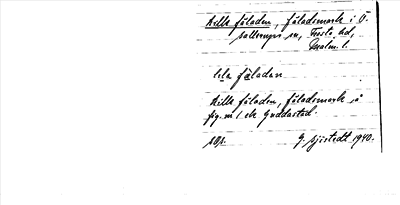 Lilla fäladen, fäladsmark i Ö.
Sallerups sn, Frosta hd,
Malm. l.
lila fäladan
Lilla fäladen, fäladsmark å
fig. nr 1 ek Guddastad.
G. Sjöstedt 1940.